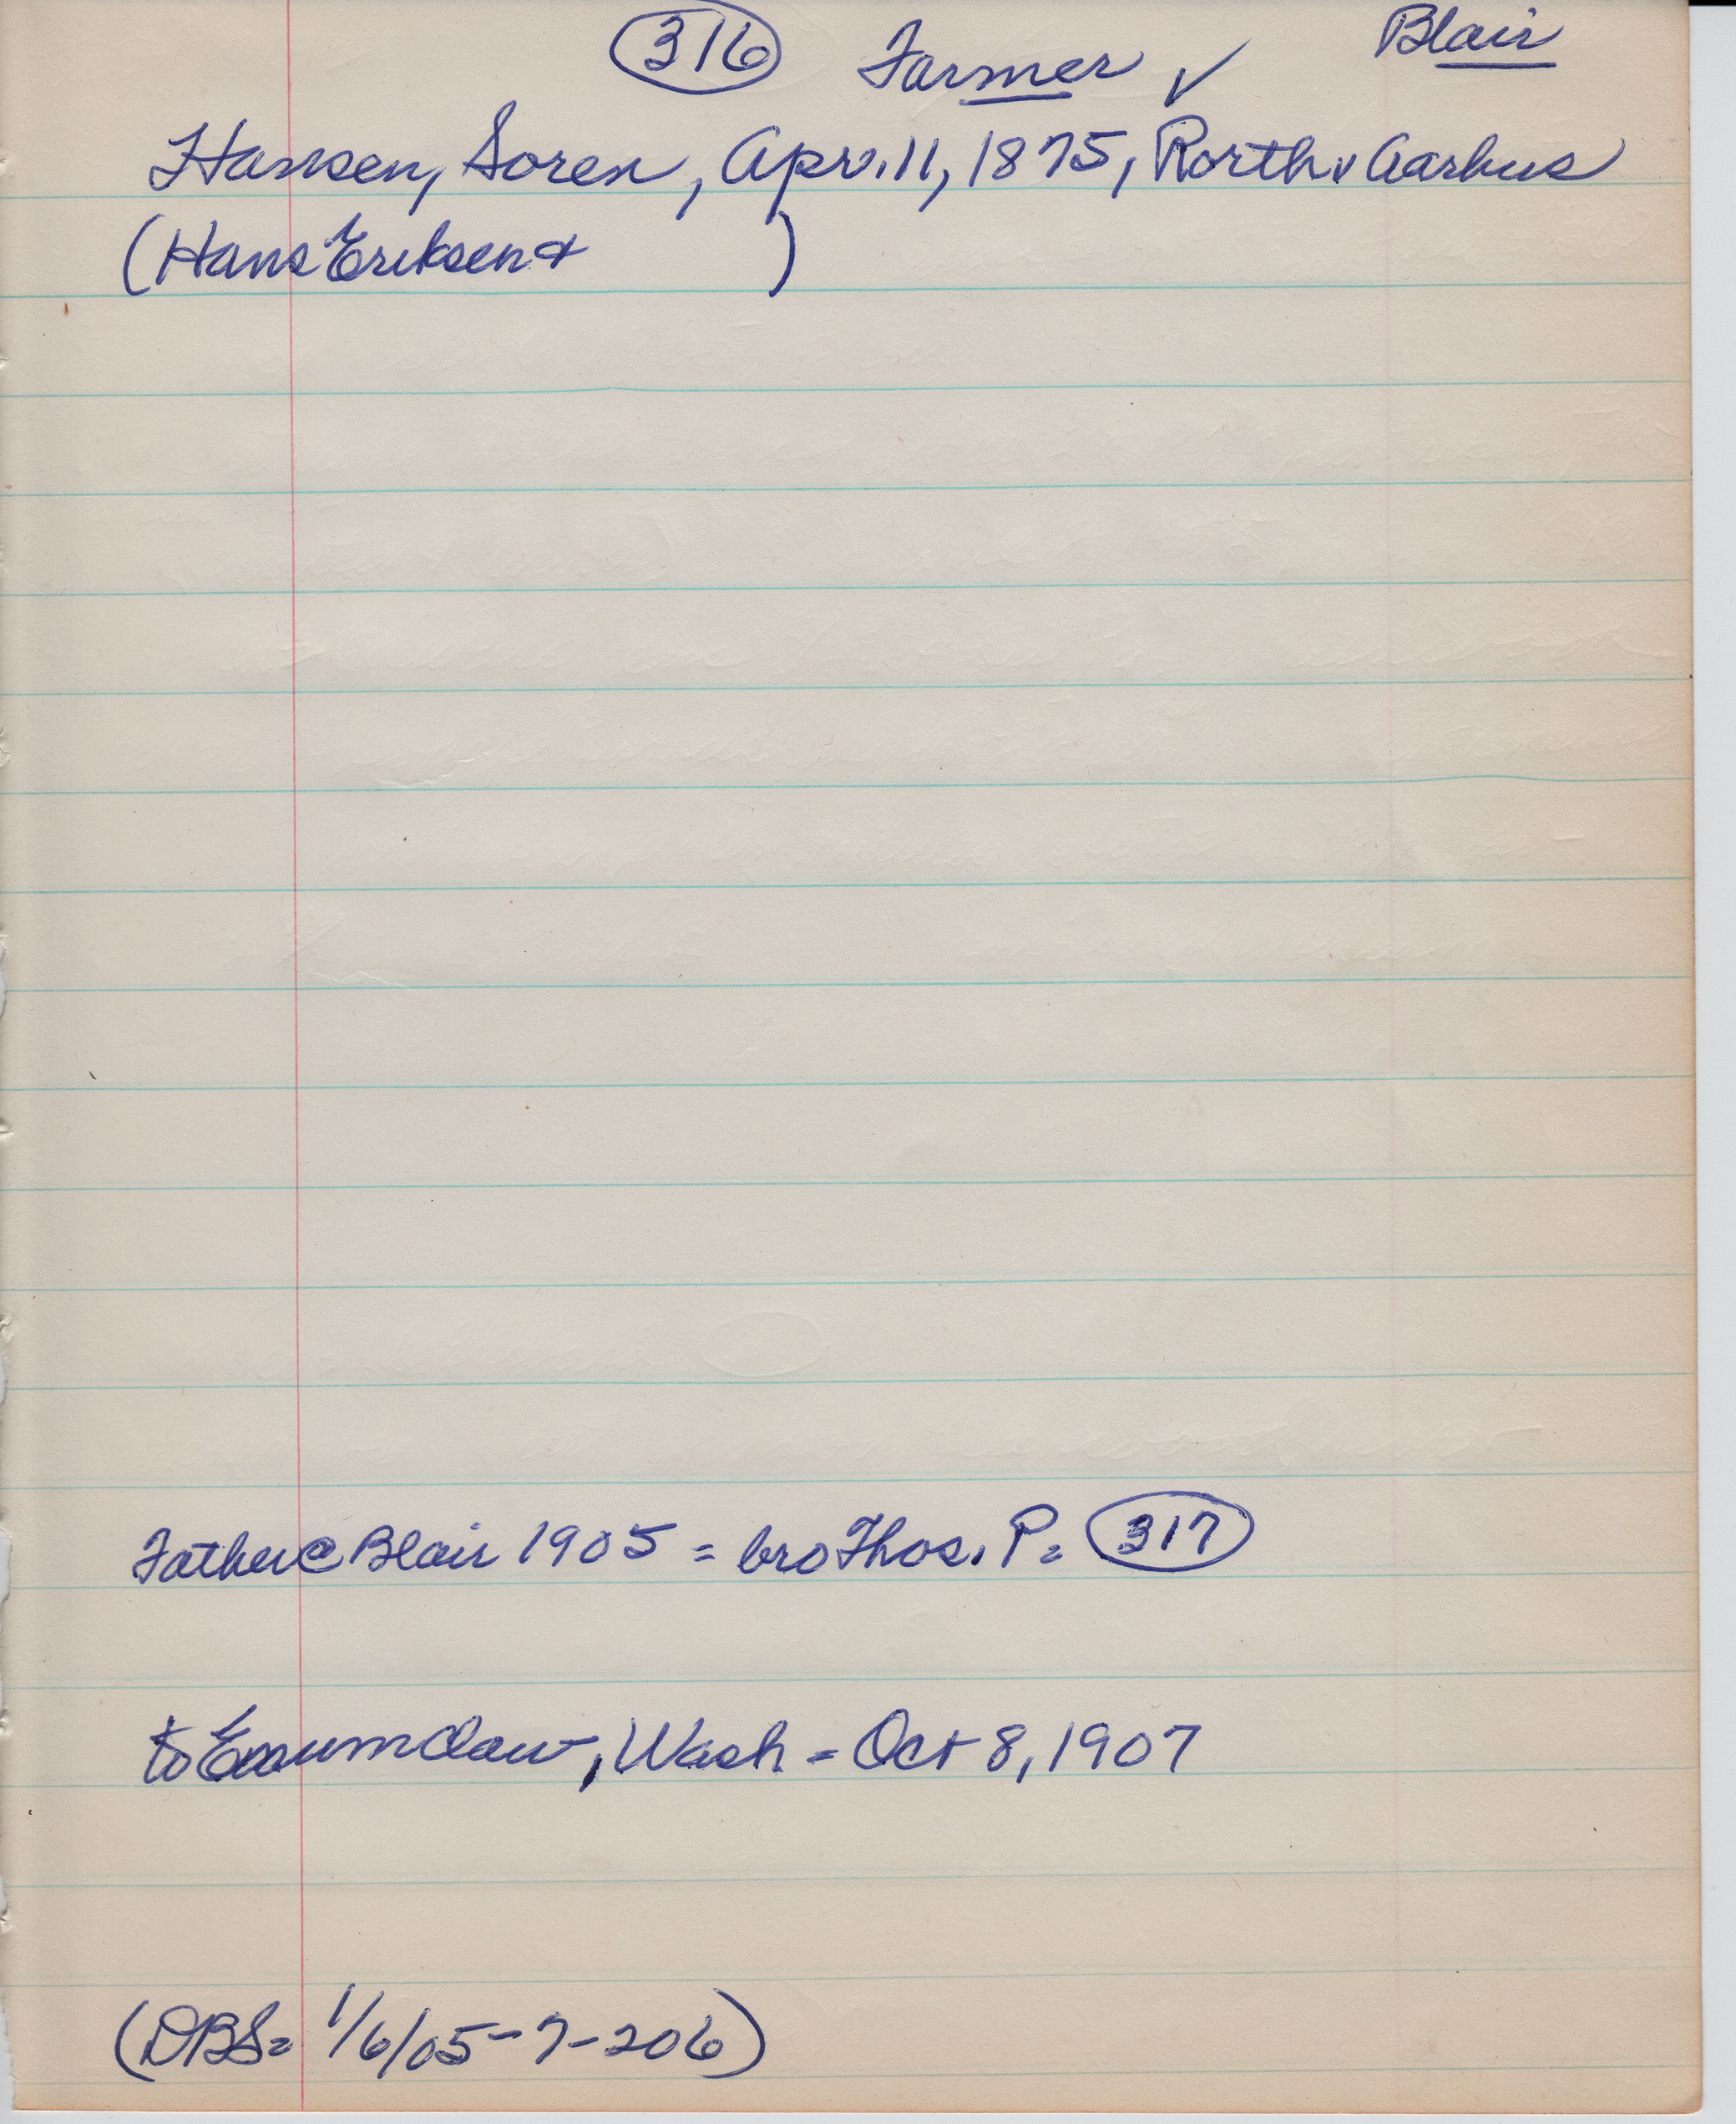 316 Farmer ✓ Blair
Hansen, Soren, Apr. 11, 1875, Rorth v Aarhus
(Hans Eriksen &        )
Father @ Blair 1905 = bro Thos. P = 317
to Enumclaw, Wash = Oct 8, 1907
(DBS = 1/6/05-7-206)